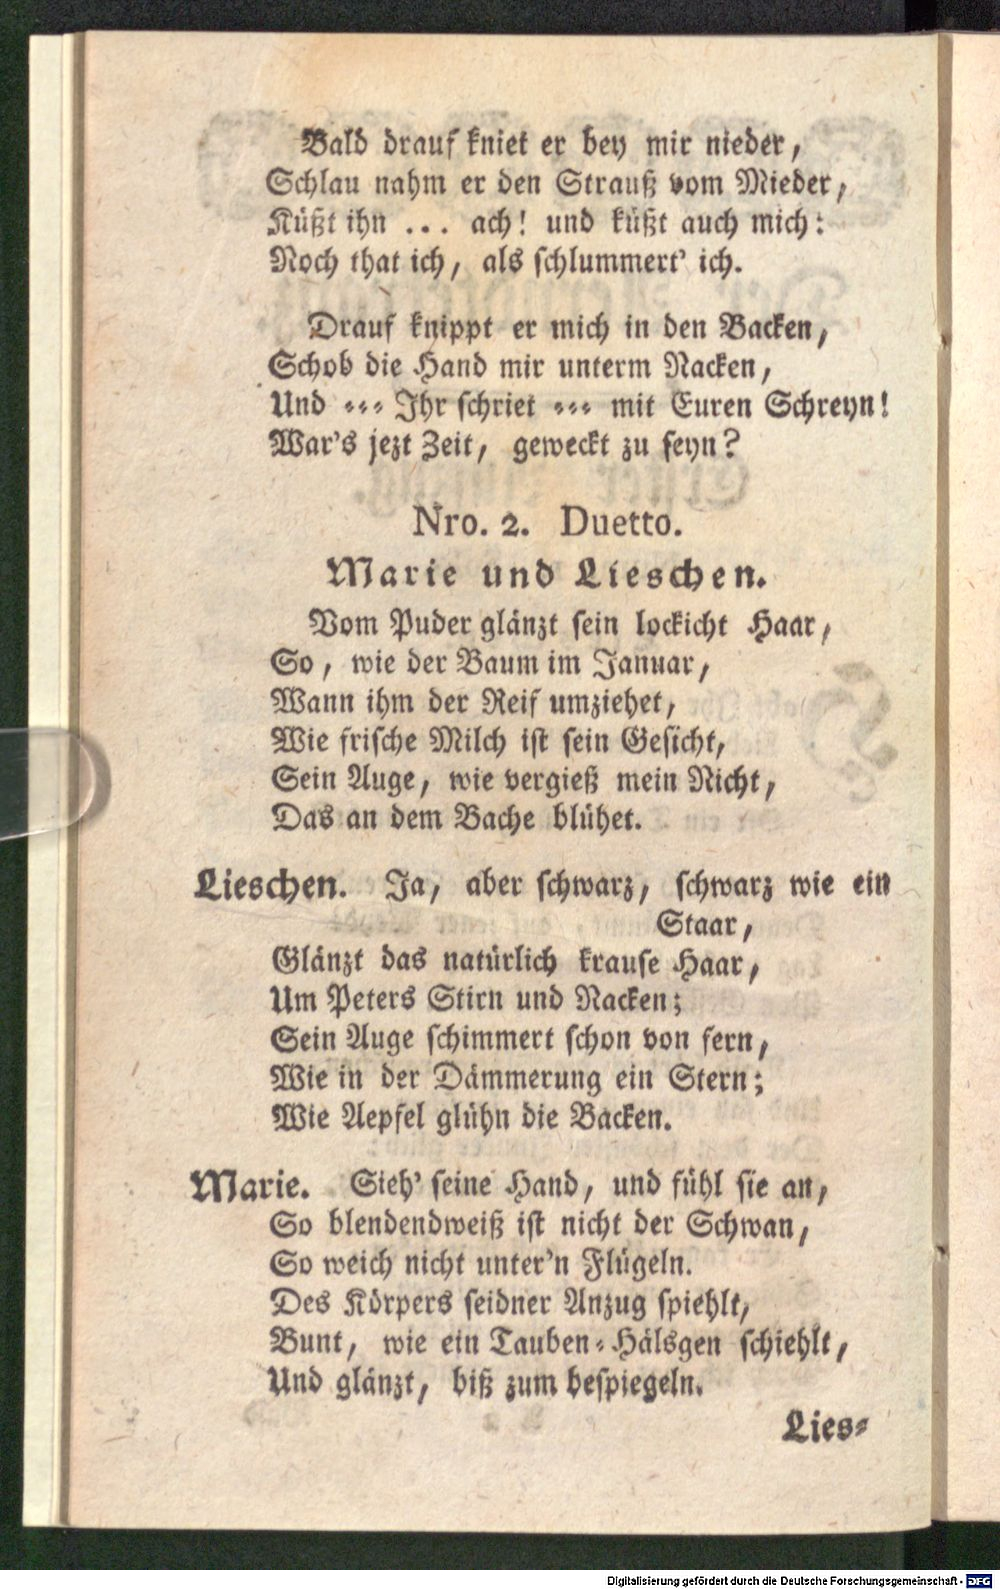 Bald drauf kniet er bey mir nieder,
Schlau nahm er den Strauß vom Mieder,
Küßt ihn ... ach! und küßt auch mich:
Noch that ich, als schlummert' ich.
Drauf knippt er mich in den Backen,
Schob die Hand mir unterm Nacken,
Und ··· Ihr schriet ··· mit Euren Schreyn!
War's jezt Zeit, geweckt zu seyn?
Nro. 2. Duetto.
Marie und Lieschen.
Vom Puder glänzt sein lockicht Haar,
So, wie der Baum im Januar,
Wann ihm der Reif umziehet,
Wie frische Milch ist sein Gesicht,
Sein Auge, wie vergieß mein Nicht,
Das an dem Bache blühet.
Lieschen. Ja, aber schwarz, schwarz wie ein
Staar,
Glänzt das natürlich krause Haar,
Um Peters Stirn und Nacken;
Sein Auge schimmert schon von fern,
Wie in der Dämmerung ein Stern;
Wie Aepfel glühn die Backen.
Marie. Sieh' seine Hand, und fühl sie an,
So blendendweiß ist nicht der Schwan,
So weich nicht unter'n Flügeln.
Des Körpers seidner Anzug spiehlt,
Bunt, wie ein Tauben-Hälsgen schiehlt,
Und glänzt, biß zum bespiegeln.
Lies-
Digitalisierung gefördert durch die Deutsche Forschungsgemeinschaft - DFG